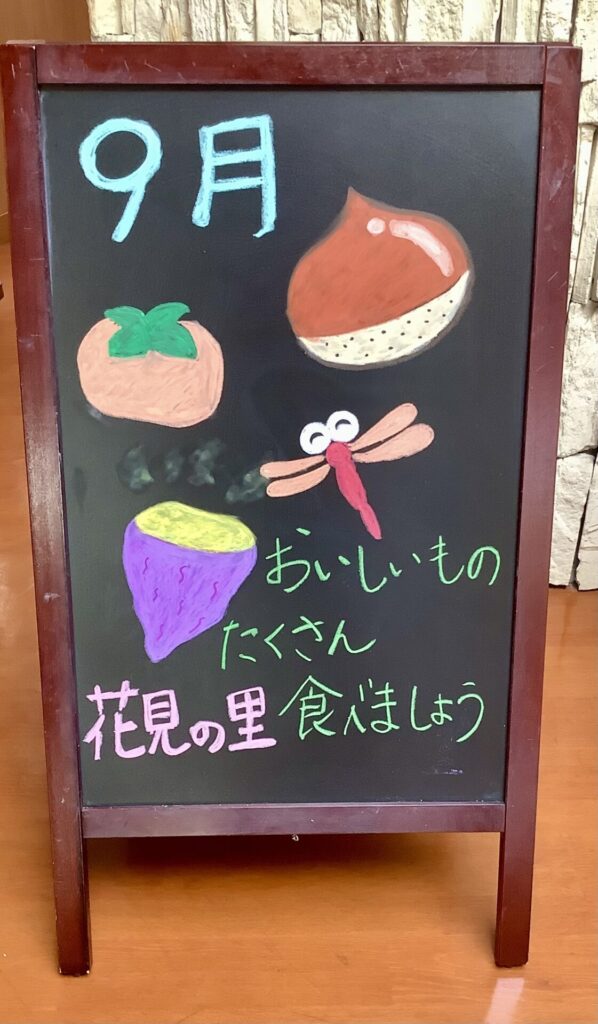 9月
おいしいもの
たくさん
花見の里 食べましょう